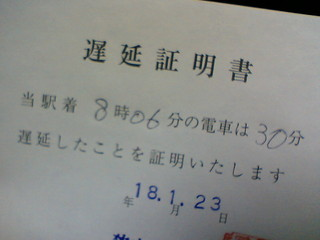 遅延証明書
当駅着 8時06分の電車は30分
遅延したことを証明いたします
18.1.23
年 月 日